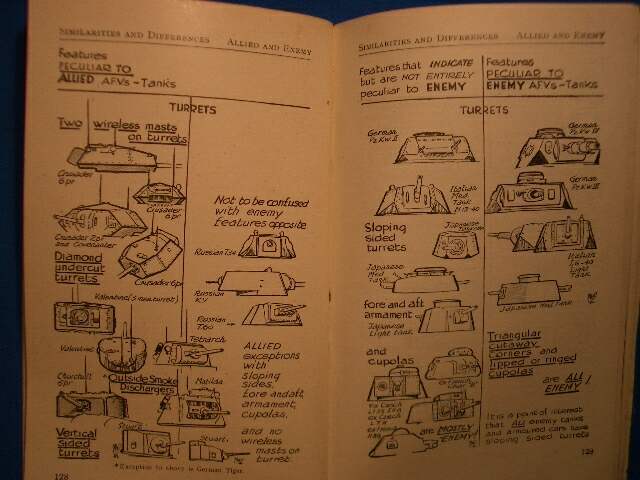 SIMILARITIES AND DIFFERENCES ALLIED AND ENEMY
Features
PECULIAR TO
ALLIED AFVs-Tanks
TURRETS
Two wireless masts
on turrets
Crusader
6 pr
Crusader
6 pr
Crusader 2pr
and Covenanter
Crusader 6pr
Diamond
undercut
turrets
Valentine (5 new turret)
Valentine
Churchill
6pr
Outside Smoke
Dischargers
Tetrarch
Matilda
Vertical
sided
turrets
Stuart
Stuart
Not to be confused
with enemy
features opposite
Russian T34
Russian
KV
Russian
T60
ALLIED
exceptions
with
sloping
sides,
fore and aft
armament,
cupolas,
and no
wireless
masts on
turret
*Exception to above is German Tiger.
128
SIMILARITIES AND DIFFERENCES ALLIED AND ENEMY
Features that INDICATE
but are NOT ENTIRELY
peculiar to ENEMY
Features
PECULIAR TO
ENEMY AFVs-Tanks
TURRETS
German
Pz.Kw.II
Italian
Med
Tank
M13-40
Sloping
sided
turrets
Japanese
Japanese
Med
Tank
fore and aft
armament
Japanese
Light tank
and
cupolas
ex Czech
are MOSTLY
ENEMY!
German
Pz Kw III
German
Italian
L6-40
Light
Tank
Japanese Med Tank
Triangular
cutaway
corners and
lipped or ringed
cupolas
are ALL
ENEMY!
It is a point of interest
that ALL enemy tanks
and armoured cars have
sloping sided turrets
129